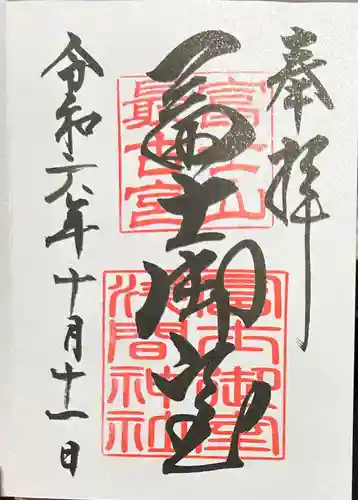 奉拝
富士御室
令和六年十月十一日
富士山
最古宮
富士御室
浅間神社